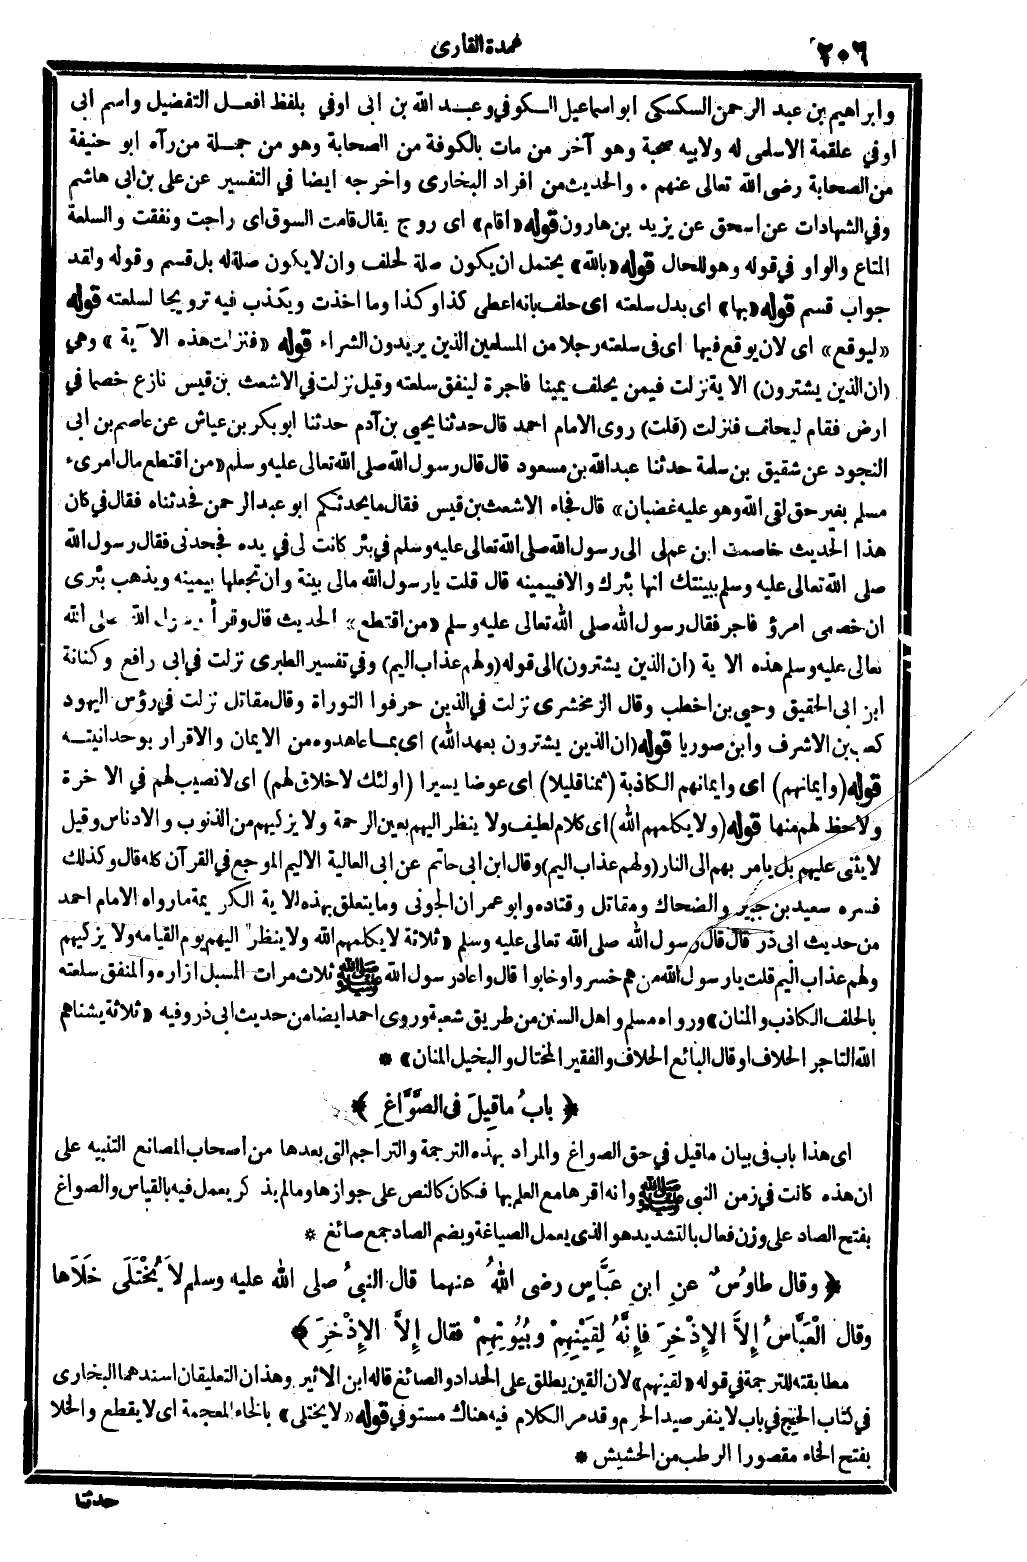 ٢٠٦ عمدة القارى
وابراهيم بن عبد الرحمن السكسكى ابو اسماعيل السكوفي وعبد الله بن ابى اوفي بلفظ افعل التفضيل واسم ابى
اوفي علقمة الاسلمى له ولابيه صحبة وهو آخر من مات بالكوفة من الصحابة وهو من جملة من رآه ابو حنيفة
من الصحابة رضى الله تعالى عنهم ٠ والحديث من افراد البخارى واخرجه ايضا في التفسير عن على بن ابى هاشم
وفي الشهادات عن اسحق عن يزيد بن هارون قوله «اقام» اى روج يقال قامت السوق اى راجت ونفقت والسلعة
المتاع والواو في قوله وهو للحال قوله «بالله» يحتمل ان يكون صلة لحلف وان لا يكون صلة له بل قسم وقوله ولقد
جواب قسم قوله «بها» اى بدل سلعته اى حلف بانه اعطى كذا وكذا وما اخذت ويكذب فيه ترويجا لسلعته قوله
«ليوقع» اى لان يوقع فيها اى فى سلعته رجلا من المسلمين الذين يريدون الشراء قوله «فنزلت هذه الآية» وهي
(ان الذين يشترون) الاية نزلت فيمن يحلف يمينا فاجرة لينفق سلعته وقيل نزلت في الاشعث بن قيس نازع خصما في
ارض فقام ليحلف فنزلت (قلت) روى الامام احمد قال حدثنا يحيى بن آدم حدثنا ابو بكر بن عياش عن عاصم بن ابى
النجود عن شقيق بن سلمة حدثنا عبد الله بن مسعود قال قال رسول الله صلى الله تعالى عليه وسلم «من اقتطع مال امرىء
مسلم بغير حق لقى الله وهو عليه غضبان» قال فجاء الاشعث بن قيس فقال ما يحدثكم ابو عبد الرحمن فحدثناه فقال في كان
هذا الحديث خاصمت ابن عم لى الى رسول الله صلى الله تعالى عليه وسلم في بئر كانت لى في يده فجحدنى فقال رسول الله
صلى الله تعالى عليه وسلم بينتك انها بئرك والا فيمينه قال قلت يارسول الله مالى بينة وان تجعلها بيمينه ويذهب بئرى
ان خصمى امرؤ فاجر فقال رسول الله صلى الله تعالى عليه وسلم «من اقتطع» الحديث قال وقرأ رسول الله صلى الله
تعالى عليه وسلم هذه الاية (ان الذين يشترون) الى قوله (ولهم عذاب اليم) وفي تفسير الطبرى نزلت في ابى رافع وكنانة
ابن ابى الحقيق وحيى بن اخطب وقال الزمخشرى نزلت في الذين حرفوا التوراة وقال مقاتل نزلت في رؤس اليهود
كعب بن الاشرف وابن صوريا قوله (ان الذين يشترون بعهد الله) اى بما عاهدوه من الايمان والاقرار بوحدانيته
قوله (وايمانهم) اى وايمانهم الكاذبة (ثمنا قليلا) اى عوضا يسيرا (اولئك لا خلاق لهم) اى لا نصيب لهم في الاخرة
ولا حظ لهم منها قوله (ولا يكلمهم الله) اى كلام لطيف ولا ينظر اليهم بعين الرحمة ولا يزكيهم من الذنوب والادناس وقيل
لا يثنى عليهم بل يامر بهم الى النار (ولهم عذاب اليم) وقال ابن ابى حاتم عن ابى العالية الاليم الموجع في القرآن كله قال وكذلك
فسره سعيد بن جبير والضحاك ومقاتل وقتاده وابو عمران الجونى وما يتعلق بهذه الاية الكريمة ما رواه الامام احمد
من حديث ابى ذر قال قال رسول الله صلى الله تعالى عليه وسلم «ثلاثة لا يكلمهم الله ولا ينظر اليهم يوم القيامه ولا يزكيهم
ولهم عذاب اليم قلت يارسول الله من هم خسروا وخابوا قال واعاد رسول الله ﷺ ثلاث مرات المسبل ازاره والمنفق سلعته
بالحلف الكاذب والمنان» ورواه مسلم واهل السنن من طريق شعبة وروى احمد ايضا من حديث ابى ذر وفيه «ثلاثة يشناهم
الله التاجر الحلاف او قال البائع الحلاف والفقير المختال والبخيل المنان» *
﴿ بابُ ماقِيلَ فى الصَّوَّاغِ ﴾ *
اى هذا باب فى بيان ماقيل في حق الصواغ والمراد بهذه الترجمة والتراجم التى بعدها من أصحاب المصانع التنبيه على
ان هذه كانت في زمن النبى ﷺ وأنه اقرها مع العلم بها فكان كالنص على جوازها ومالم يذكر يعمل فيه بالقياس والصواغ
بفتح الصاد على وزن فعال بالتشديد هو الذى يعمل الصياغة وبضم الصاد جمع صائغ *
﴿ وقال طاوُسٌ عنِ ابنِ عَبَّاسٍ رضى اللهُ عنهما قال النبىُّ صلى الله عليه وسلم لاَ يُخْتَلَى خَلاَها
وقال الْعَبَّاسُ إلاَّ الإِذْخِرَ فإنَّهُ لِقَيْنِهِمْ وبُيُوتِهِمْ فقال إلاَّ الإِذْخِرَ ﴾
مطابقته للترجمة في قوله «لقينهم» لان القين يطلق على الحداد والصائغ قاله ابن الاثير وهذان التعليقان اسندهما البخارى
في كتاب الحج في باب لا ينفر صيد الحرم وقد مر الكلام فيه هناك مستوفي قوله «لا يختلى» بالخاء المعجمة اى لا يقطع والخلا
بفتح الخاء مقصورا الرطب من الحشيش *
حدثنا